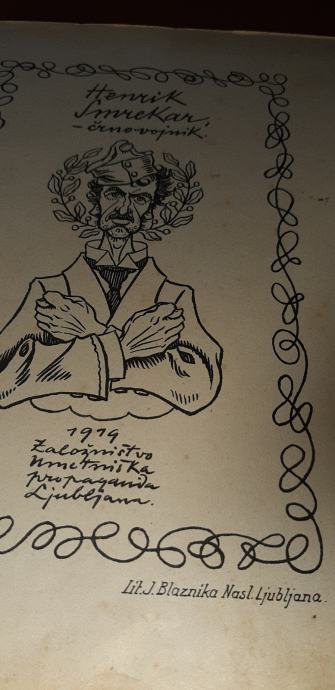 Henrik
Smrekar,
- črnovojnik.
1919
Založništvo
Umetniška
propaganda
Ljubljana.
Lit. J. Blaznika Nasl. Ljubljana.